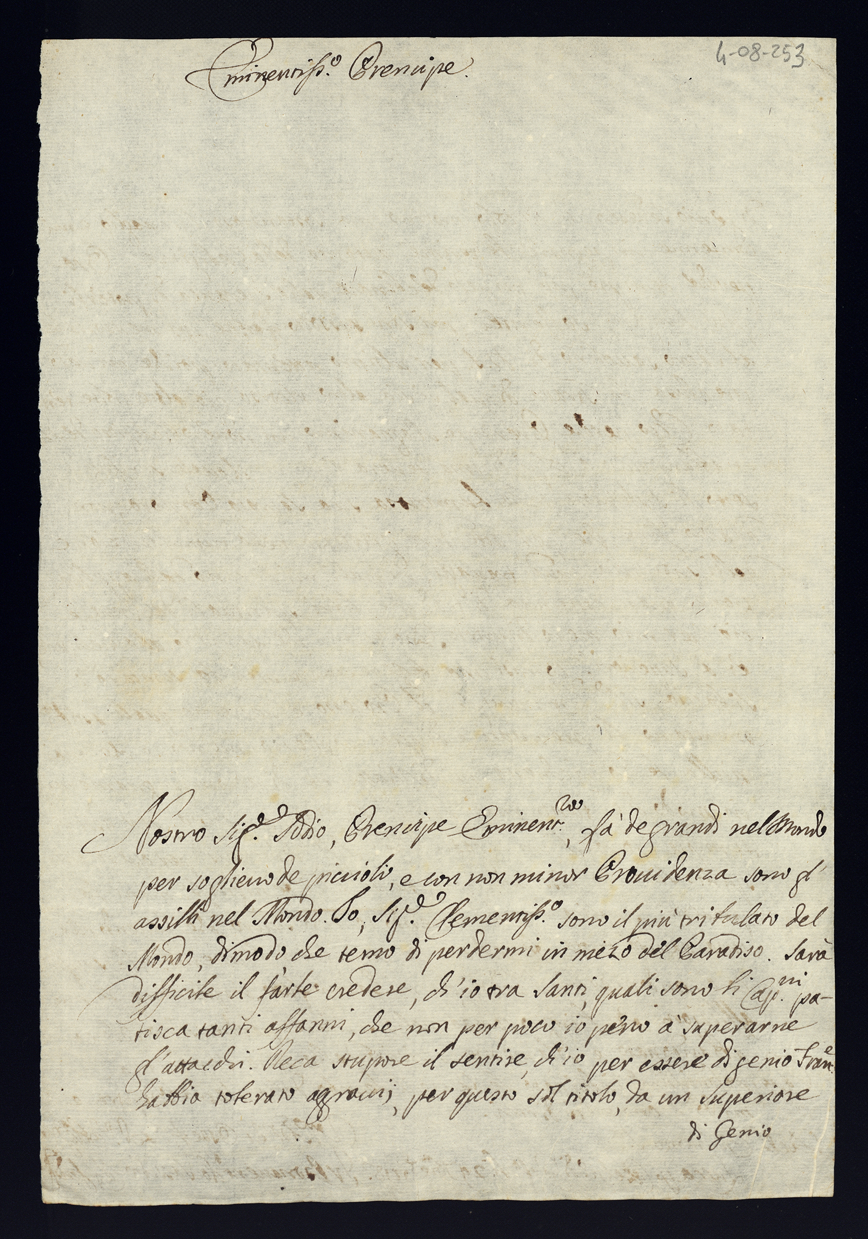 4-08-253
Eminentiss.o Prencipe.
Nostro Sig.re Iddio, Prencipe Eminent.mo, fà de grandi nel Mondo
per soglievo de piccioli, e con non minor Providenza sono gl'
assisti nel Mondo. Io, Sig.re Clementiss.o sono il più tribulato del
Mondo, dimodo che temo di perdermi in mezo del Paradiso. Sarà
difficile il farle credere, ch'io tra Santi, quali sono li Cap.ni pa-
tisca tanti affanni, che non per poco io peno a superarne
gl'attacchi. Reca stupore il sentire, ch'io per essere di genio Fran.e
habbia tolerato agravij, per questo sol titolo, da un superiore
di Genio